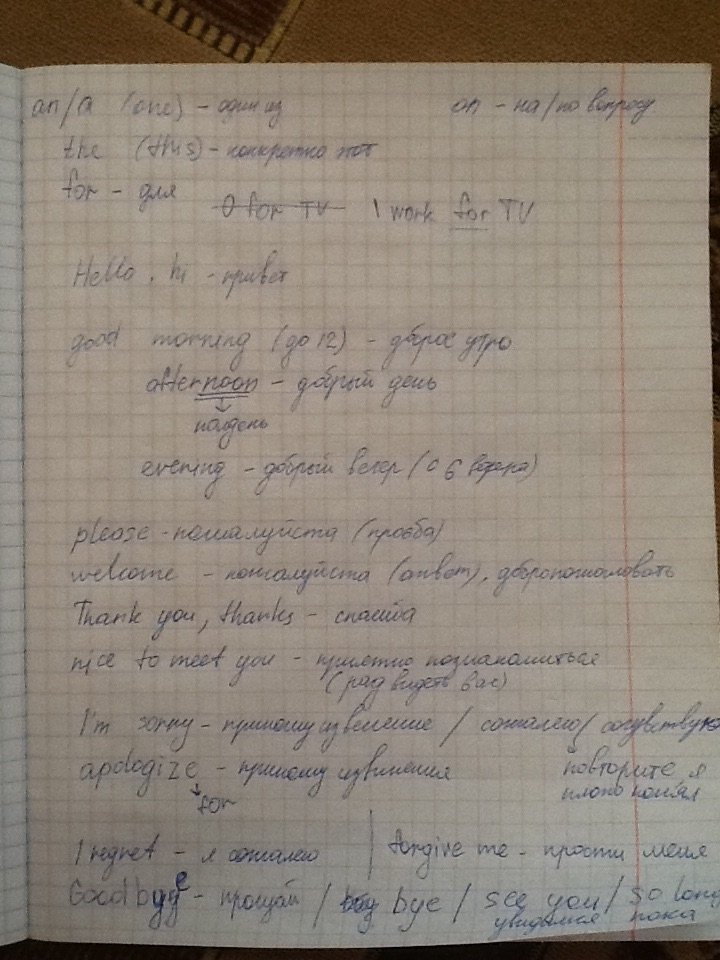 an/a (one) – один из on – на/по вопросу
the (this) – конкретно этот
for – для
O for TV I work for TV
Hello, hi – привет
good morning (до 12) – доброе утро
afternoon – добрый день
полдень
evening – добрый вечер (с 6 вечера)
please – пожалуйста (просьба)
welcome – пожалуйста (ответ), добропожаловать
Thank you, thanks – спасибо
nice to meet you – приятно познакомиться
(рад видеть вас)
I'm sorry – приношу извенение / сожалею / сочувствую
apologize – приношу извинения повторите я
for плохо понял
I regret – я сожалею | forgive me – прости меня
Goodbye – прощай / bye / see you / so long
увидимся пока